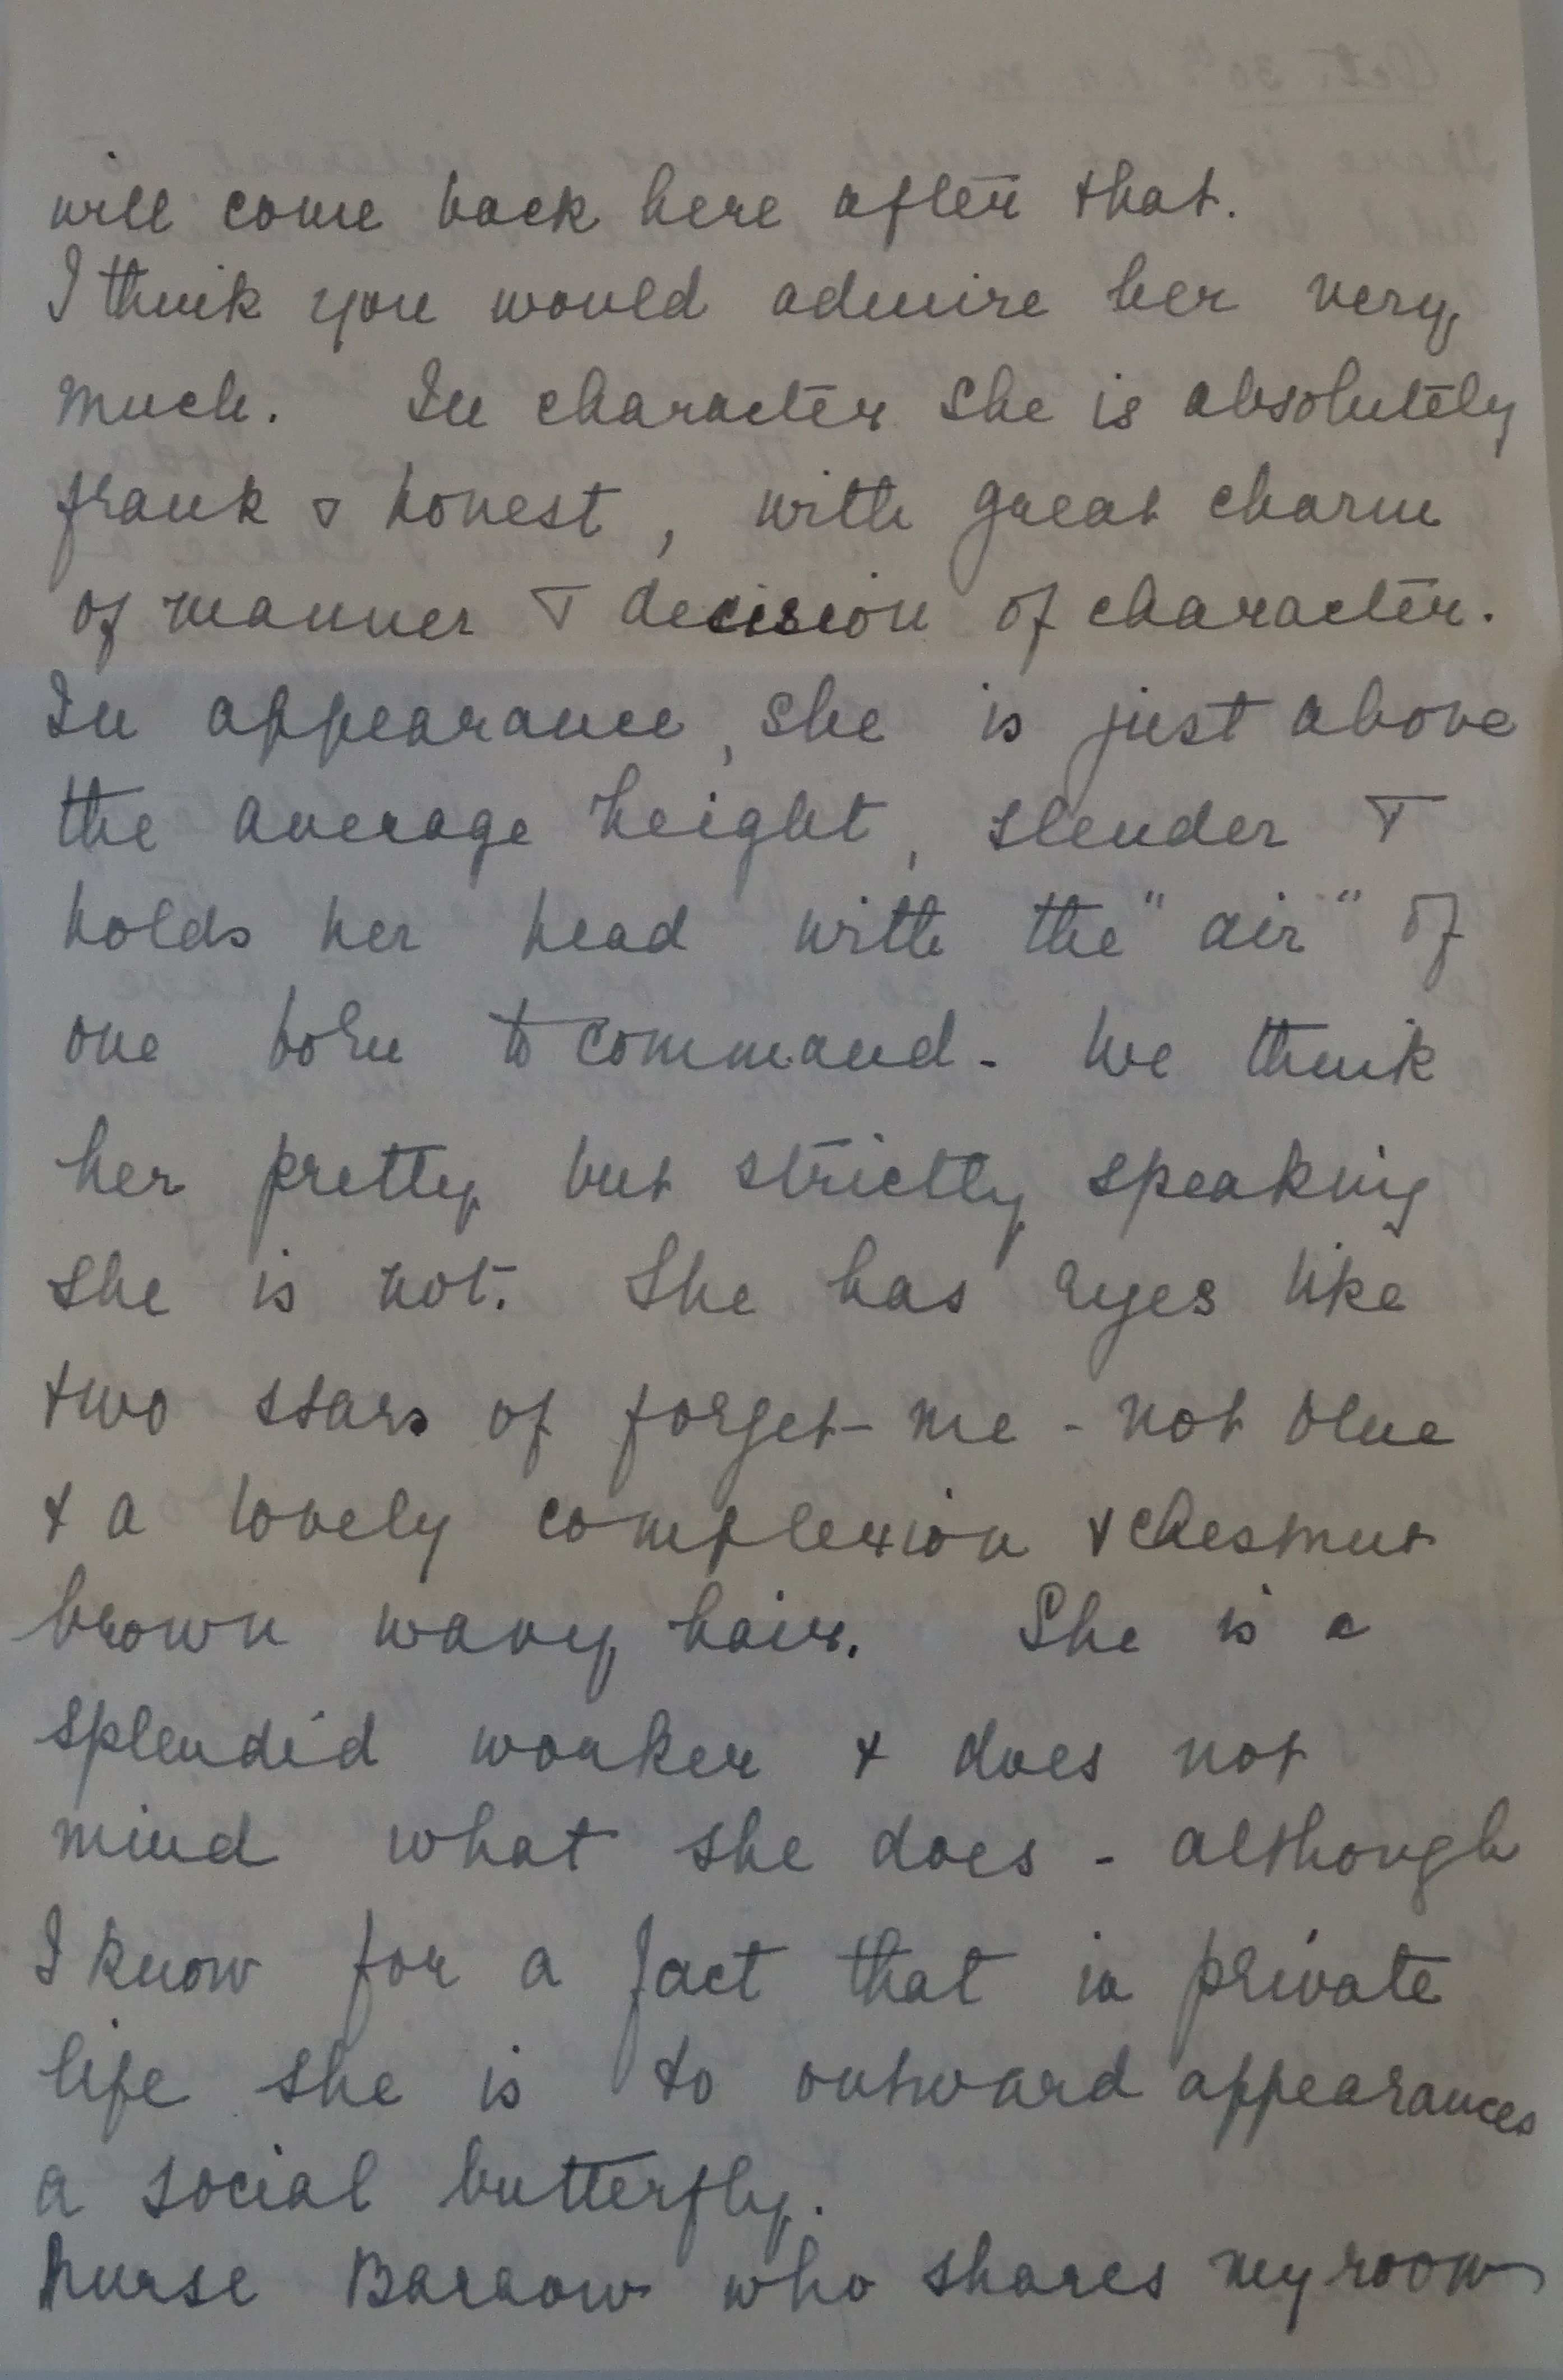 will come back here after that.
I think you would admire her very
much. In character she is absolutely
frank & honest, with great charm
of manner & decision of character.
In appearance, she is just above
the average height, slender &
holds her head with the "air" of
one born to command - We think
her pretty but strictly speaking
she is not. She has eyes like
two stars of forget-me-not blue
& a lovely complexion & chesnut
brown wavy hair. She is a
splendid worker & does not
mind what she does - although
I know for a fact that in private
life she is to outward appearances
a social butterfly.
Nurse Barrow who shares my room